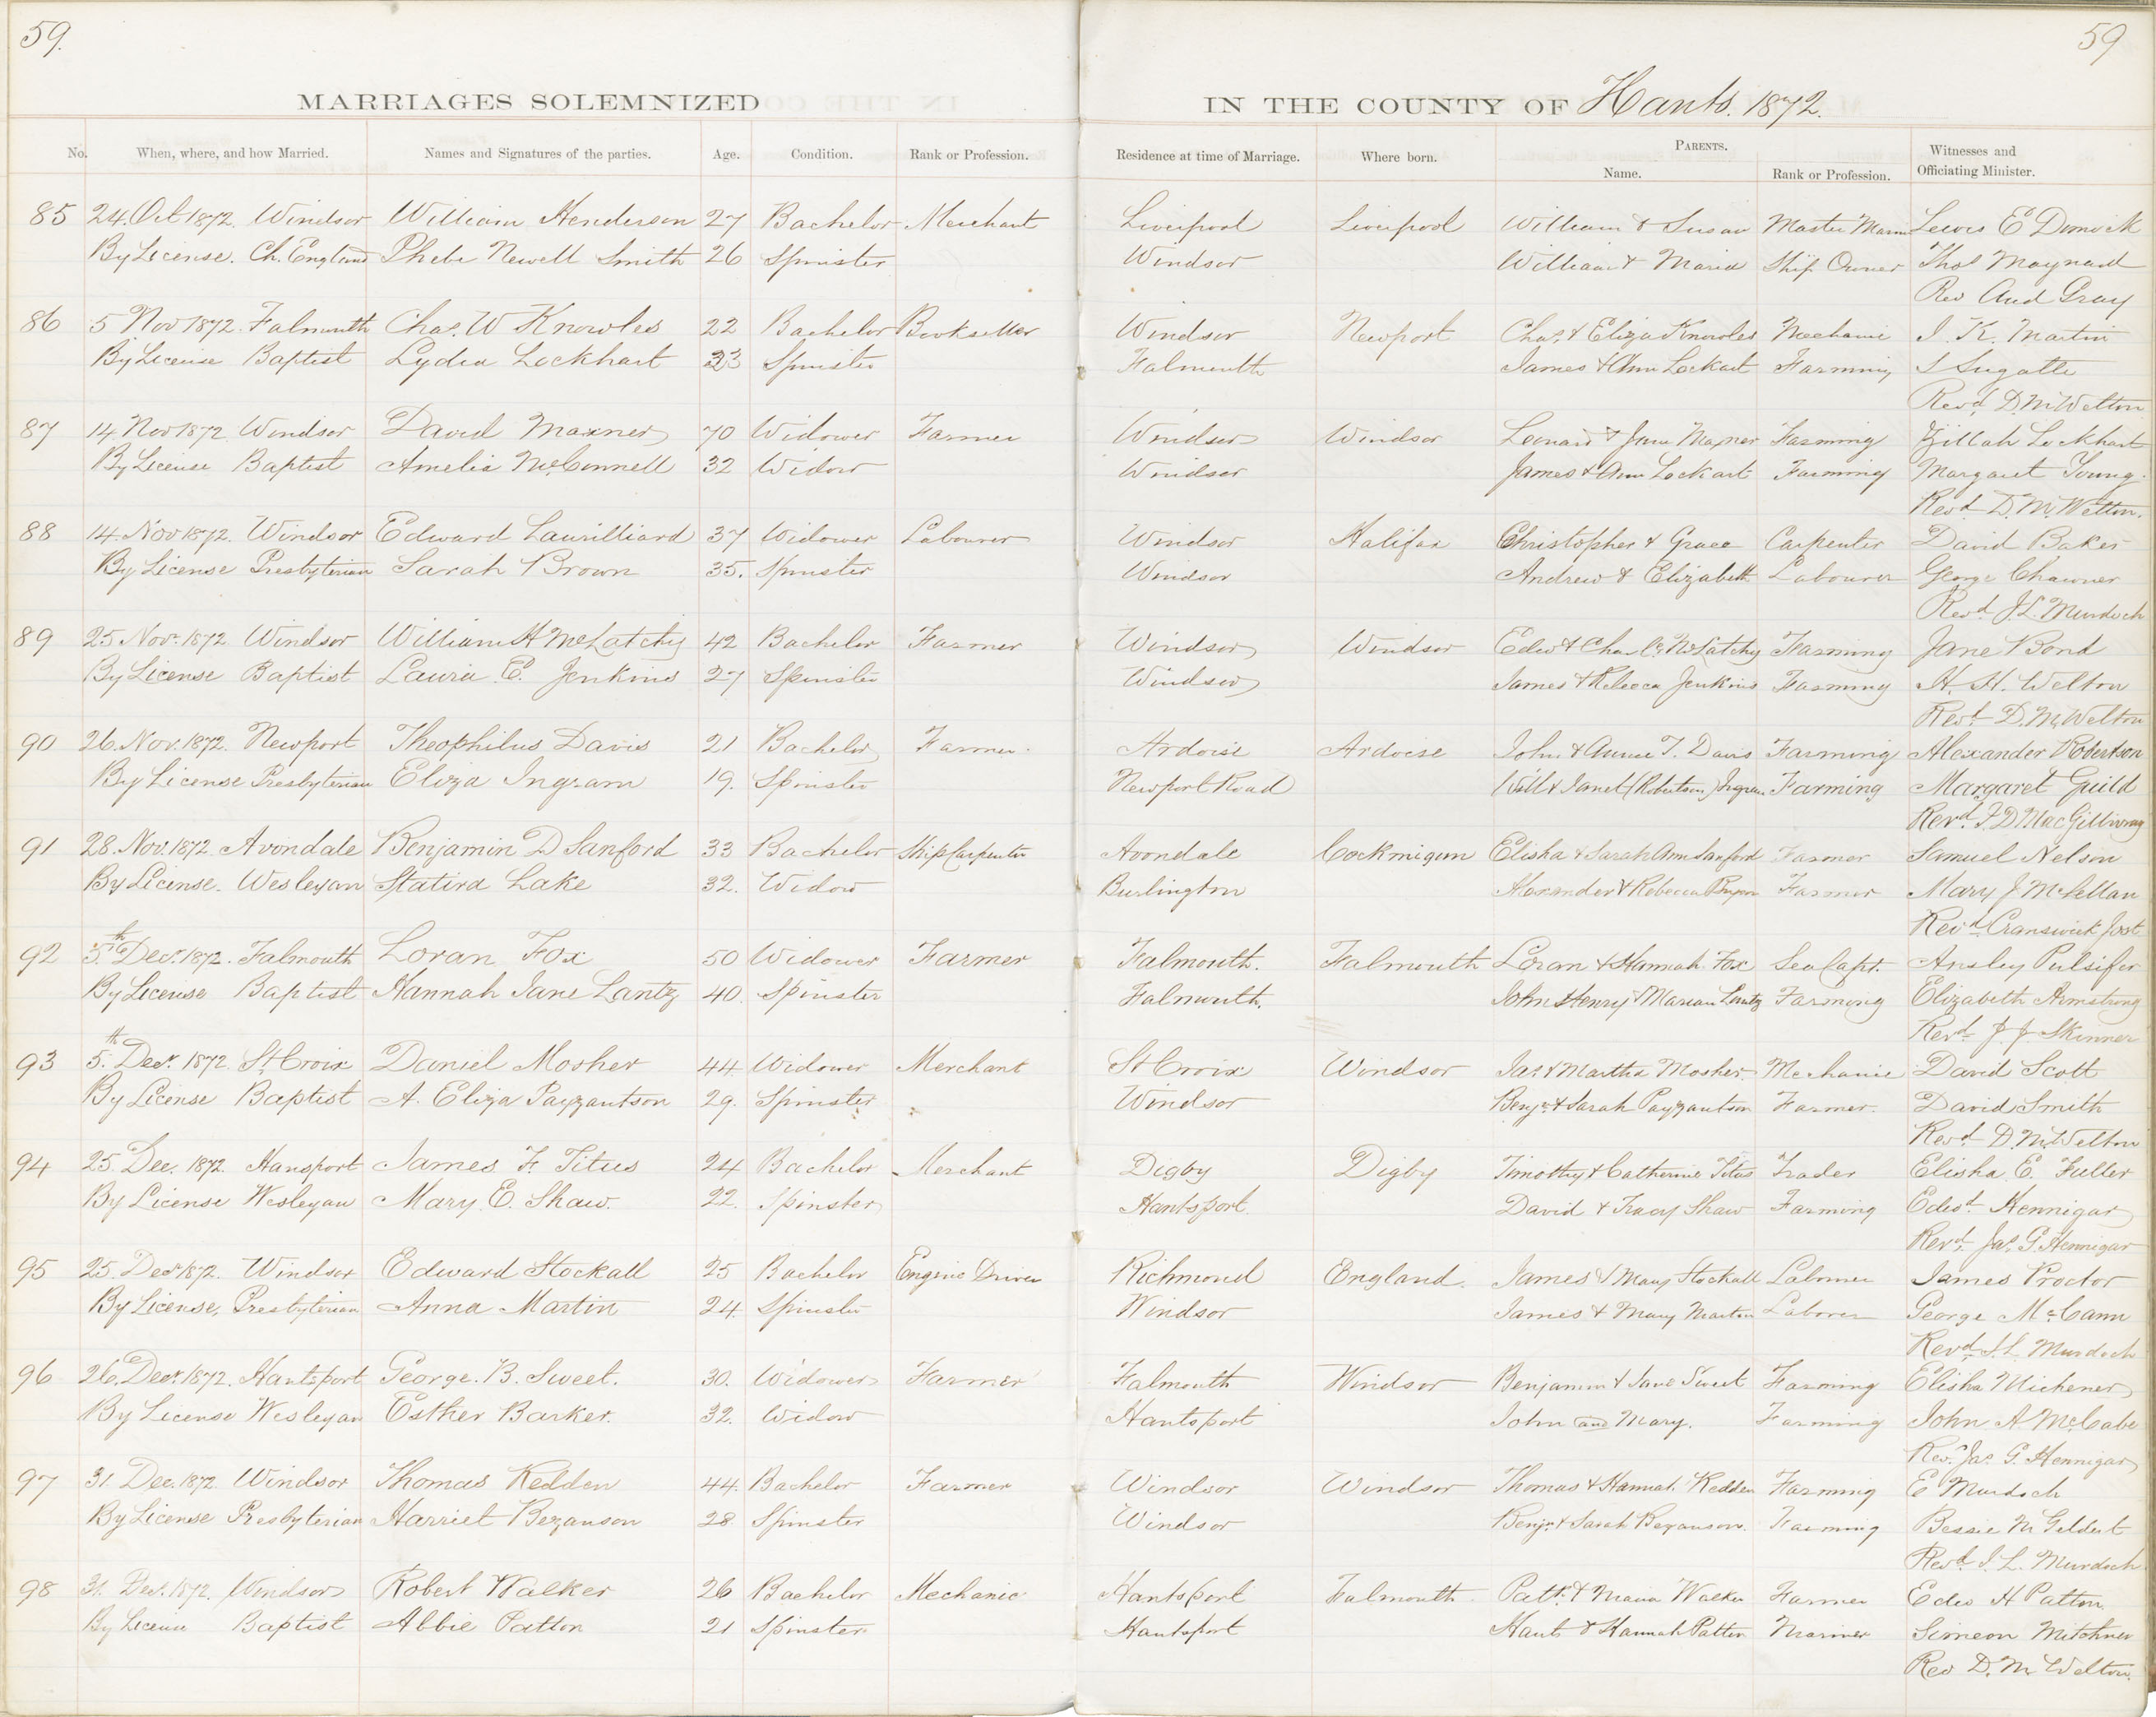 59.
59
MARRIAGES SOLEMNIZED
IN THE COUNTY OF Hants. 1872.
No. When, where, and how Married. Names and Signatures of the parties. Age. Condition. Rank or Profession. Residence at time of Marriage. Where born. PARENTS. Name. Rank or Profession. Witnesses and Officiating Minister.
85 24. Oct 1872. Windsor William Henderson 27 Bachelor Merchant Liverpool Liverpool William & Susan Master Lewis E Dimock
By License. Ch. England Phebe Newell Smith 26 Spinster Windsor William & Maria Ship Owner Thos Maynard
Rev And Gray
86 5 Nov 1872. Falmouth Chas. W Knowles 22 Bachelor Bookseller Windsor Newport Chas. & Eliza Knowles Mechanic J. K. Martin
By License Baptist Lydia Lockhart 23 Spinster Falmouth James & Ann Lockart Farming S
Revd. D. M. Welton
87 14 Nov 1872 Windsor David Maxner 70 Widower Farmer Windsor Windsor Leonard & Jane Maxner Farming Zillah Lockhart
By License Baptist Amelia McConnell 32 Widow Windsor James & Ann Lockart Farming Margaret Young.
Revd D. M. Welton.
88 14. Nov 1872. Windsor Edward Laurilliard 37 Widower Labourer Windsor Halifax Christopher & Grace Carpenter David Baker
By License Presbyterian Sarah Brown 35. Spinster Windsor Andrew & Elizabeth Labourer George Chawner
Revd. J. L. Murdoch
89 25 Nov. 1872 Windsor William H McLatchy 42 Bachelor Farmer Windsor Windsor Edw & McLatchy Farming Jane Bond
By License Baptist Lauria E. Jenkins 27 Spinster Windsor James & Rebecca Jenkins Farming H. H. Welton
Revd. D. M. Welton
90 26. Nov. 1872. Newport Theophilus Davis 21 Bachelor Farmer. Ardoise Ardoise John & Annie T. Davis Farming Alexander Robertson
By License Presbyterian Eliza Ingram 19. Spinster Newport Road Will & Janet (Robertson) Ingram Farming Margaret Guild
Revd. F D MacGillivray
91 28. Nov. 1872. Avondale Benjamin D Sanford 33 Bachelor Ship Carpenter Avondale Cockmigun Elisha & Sarah Ann Sanford Farmer Samuel Nelson
By License. Wesleyan Statira Lake 32. Widow Burlington Alexander & Rebecca Farmer Mary J. McLellan
Revd. Cranswick Jost
92 5th. Decr. 1872. Falmouth Loran Fox 50 Widower Farmer Falmouth. Falmouth Loran & Hannah Fox Sea Capt. Ansley Pulsifer
By License Baptist Hannah Jane Lantz 40. Spinster Falmouth. John Henry & Marian Lantz Farming Elizabeth Armstrong
Revd. J. J Skinner
93 5th. Decr. 1872. St. Croix Daniel Mosher 44 Widower Merchant St Croix Windsor Jas. & Martha Mosher. Mechanic David Scott
By License Baptist A. Eliza Payzantson 29. Spinster Windsor Benjn. & Sarah Payzantson Farmer. David Smith
Revd. D. M. Welton
94 25. Dec. 1872. Hansport James F. Titus 24 Bachelor Merchant Digby Digby Timothy & Catherine Titus Trader Elisha E. Fuller
By License Wesleyan Mary E. Shaw. 22. Spinster Hantsport. David & Tracy Shaw Farming Edwd. Hennigar
Revd. Jas. G. Hennigar
95 25. Decr 1872. Windsor Edward Stockall 25 Bachelor Engine Driver Richmond England. James & Mary Stockall Laborer James Proctor
By License, Presbyterian Anna Martin 24. Spinster Windsor James & Mary Martin Laborer George McCann
Revd. J. L. Murdoch
96 26. Decr. 1872. Hantsport George. B. Sweet. 30. Widower Farmer Falmouth Windsor Benjamin & Jane Sweet Farming Elisha Michener
By License Wesleyan Esther Barker. 32. Widow Hantsport John and Mary. Farming John A. McCabe
Rev. Jas. G. Hennigar
97 31. Dec. 1872. Windsor Thomas Redden 44. Bachelor Farmer Windsor Windsor Thomas & Hannah Redden Farming E Murdoch
By License Presbyterian Harriet Bezanson 28 Spinster Windsor Benjn. & Sarah Bezanson. Farming Bessie M Geldert
Revd. J. L. Murdoch
98 31. Decr. 1872. Windsor Robert Walker 26 Bachelor Mechanic Hantsport Falmouth Patk. & Maria Walker Farmer Edw H Patton.
By License Baptist Abbie Patton 21 Spinster. Hantsport & Hannah Patton Mariner Simeon Mitchner
Rev D. M. Welton.